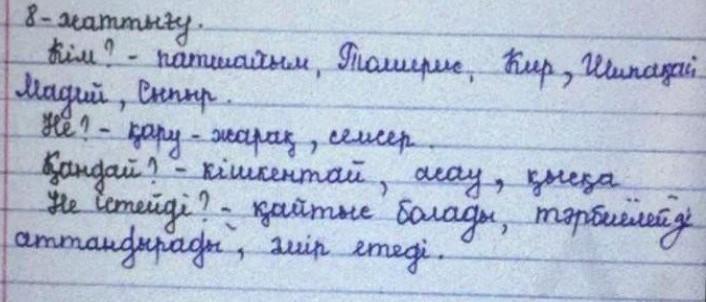 8-жаттығу.
Кім? - патшайым, Томирис, Кир, Шипақай
Мадий, Сыпыр.
Не? - қару-жарақ, семсер.
Қандай? - кішкентай, асау, қысқа
Не істейді? - қайтыс болады, тәрбиелейді
аттандырады, әмір етеді.